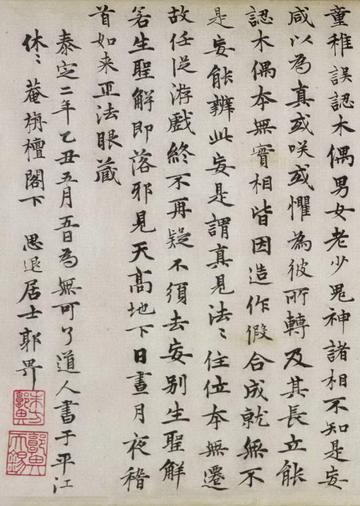 童稚誤認木偶男女老少鬼神諸相不知是妄
咸以為真或咲或懼為彼所轉及其長立能
認木偶本無實相皆因造作假合成就無不
是妄能辨此妄是謂真見法〻住位本無遷
故任從游戲終不再疑不須去妄別生聖解
若生聖解即落邪見天高地下日晝月夜稽
首如来正法眼藏
泰定二年乙丑五月五日為無可了道人書于平江
休〻菴栴檀閣下 思退居士郭畀